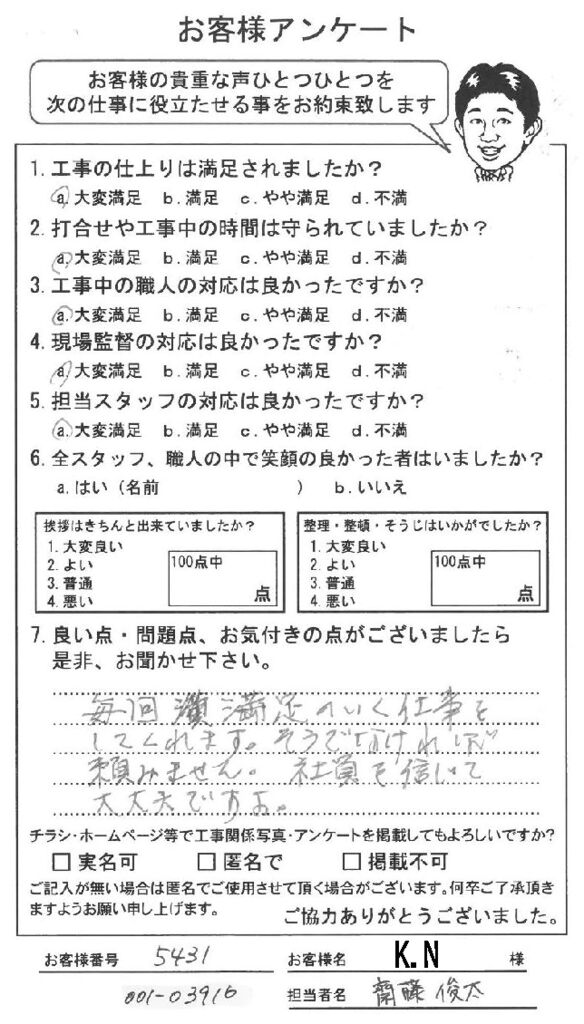 お客様アンケート
お客様の貴重な声ひとつひとつを
次の仕事に役立たせる事をお約束致します
1. 工事の仕上りは満足されましたか?
a. 大変満足 b. 満足 c. やや満足 d. 不満
2. 打合せや工事中の時間は守られていましたか?
a. 大変満足 b. 満足 c. やや満足 d. 不満
3. 工事中の職人の対応は良かったですか?
a. 大変満足 b. 満足 c. やや満足 d. 不満
4. 現場監督の対応は良かったですか?
a. 大変満足 b. 満足 c. やや満足 d. 不満
5. 担当スタッフの対応は良かったですか?
a. 大変満足 b. 満足 c. やや満足 d. 不満
6. 全スタッフ、職人の中で笑顔の良かった者はいましたか?
a. はい (名前 ) b. いいえ
挨拶はきちんと出来ていましたか?
1. 大変良い
2. よい
3. 普通
4. 悪い
100点中
点
整理・整頓・そうじはいかがでしたか?
1. 大変良い
2. よい
3. 普通
4. 悪い
100点中
点
7. 良い点・問題点、お気付きの点がございましたら
是非、お聞かせ下さい。
毎回 満足のいく仕事を
してくれます。そうでなければ
頼みません。 社員を信じて
大丈夫ですよ。
チラシ・ホームページ等で工事関係写真・アンケートを掲載してもよろしいですか?
□ 実名可 □ 匿名で □ 掲載不可
ご記入が無い場合は匿名でご使用させて頂く場合がございます。何卒ご了承頂き
ますようお願い申し上げます。
ご協力ありがとうございました。
お客様番号 5431 お客様名 K.N 様
001-03916 担当者名 齋藤 俊太